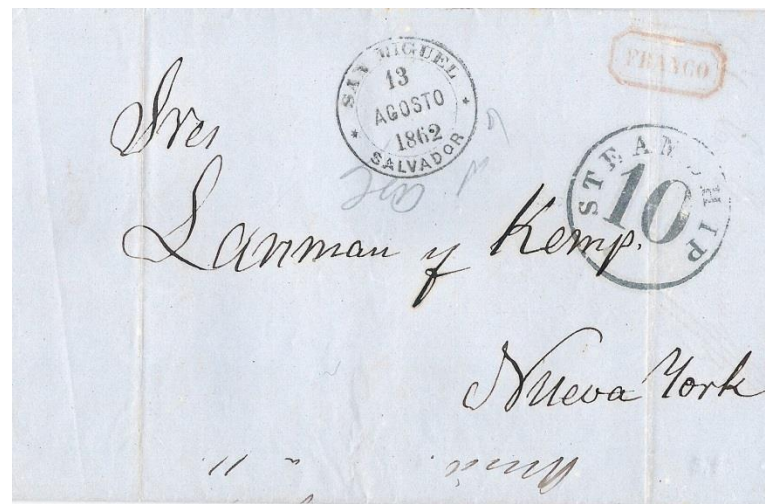 SAN MIGUEL
13
AGOSTO
1862
SALVADOR
FRANCO
STEAMSHIP
10
Sres
Lanman y Kemp.
Nueva York